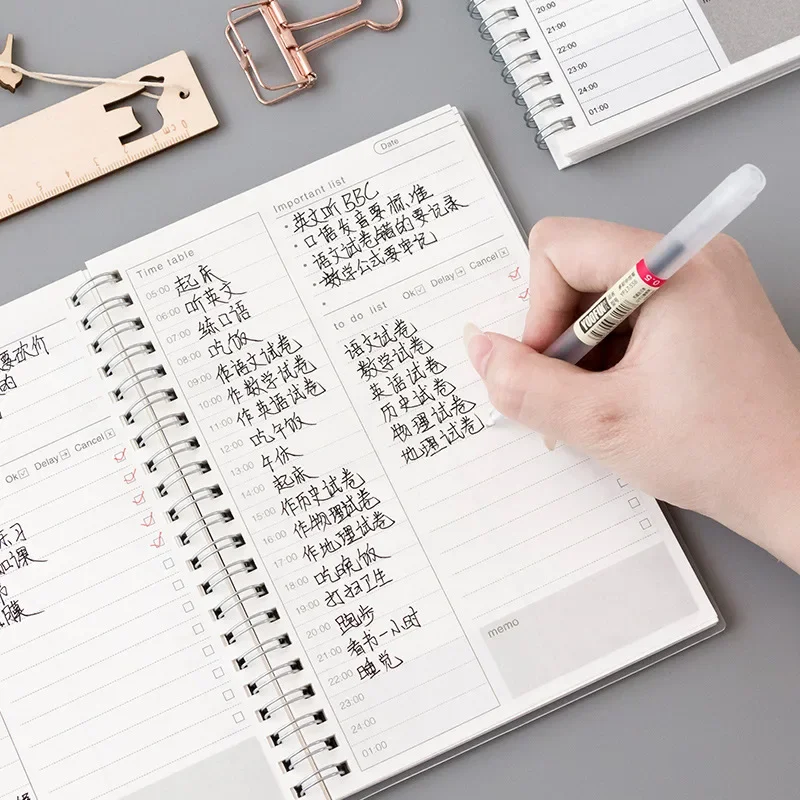 20:00
21:00
22:00
23:00
24:00
01:00
me
0cm
要砍价
的
Ok Delay Cancel
练习
加课
书
膜
Time table
05:00 起床
06:00 听英文
07:00 练口语
08:00 吃饭
09:00 作语文试卷
10:00 作数学试卷
11:00 作英语试卷
12:00 吃午饭
13:00 午休
14:00 起床
15:00 作历史试卷
16:00 作物理试卷
17:00 作地理试卷
18:00 吃晚饭
19:00 打扫卫生
20:00 跑步
21:00 看书一小时
22:00 睡觉
23:00
24:00
01:00
Date
Important list
英文听BBC
口语发音要标准
语文试卷错的要记录
数学公式要牢记
to do list Ok Delay Cancel
语文试卷
数学试卷
英语试卷
历史试卷
物理试卷
地理试卷
memo
0.5